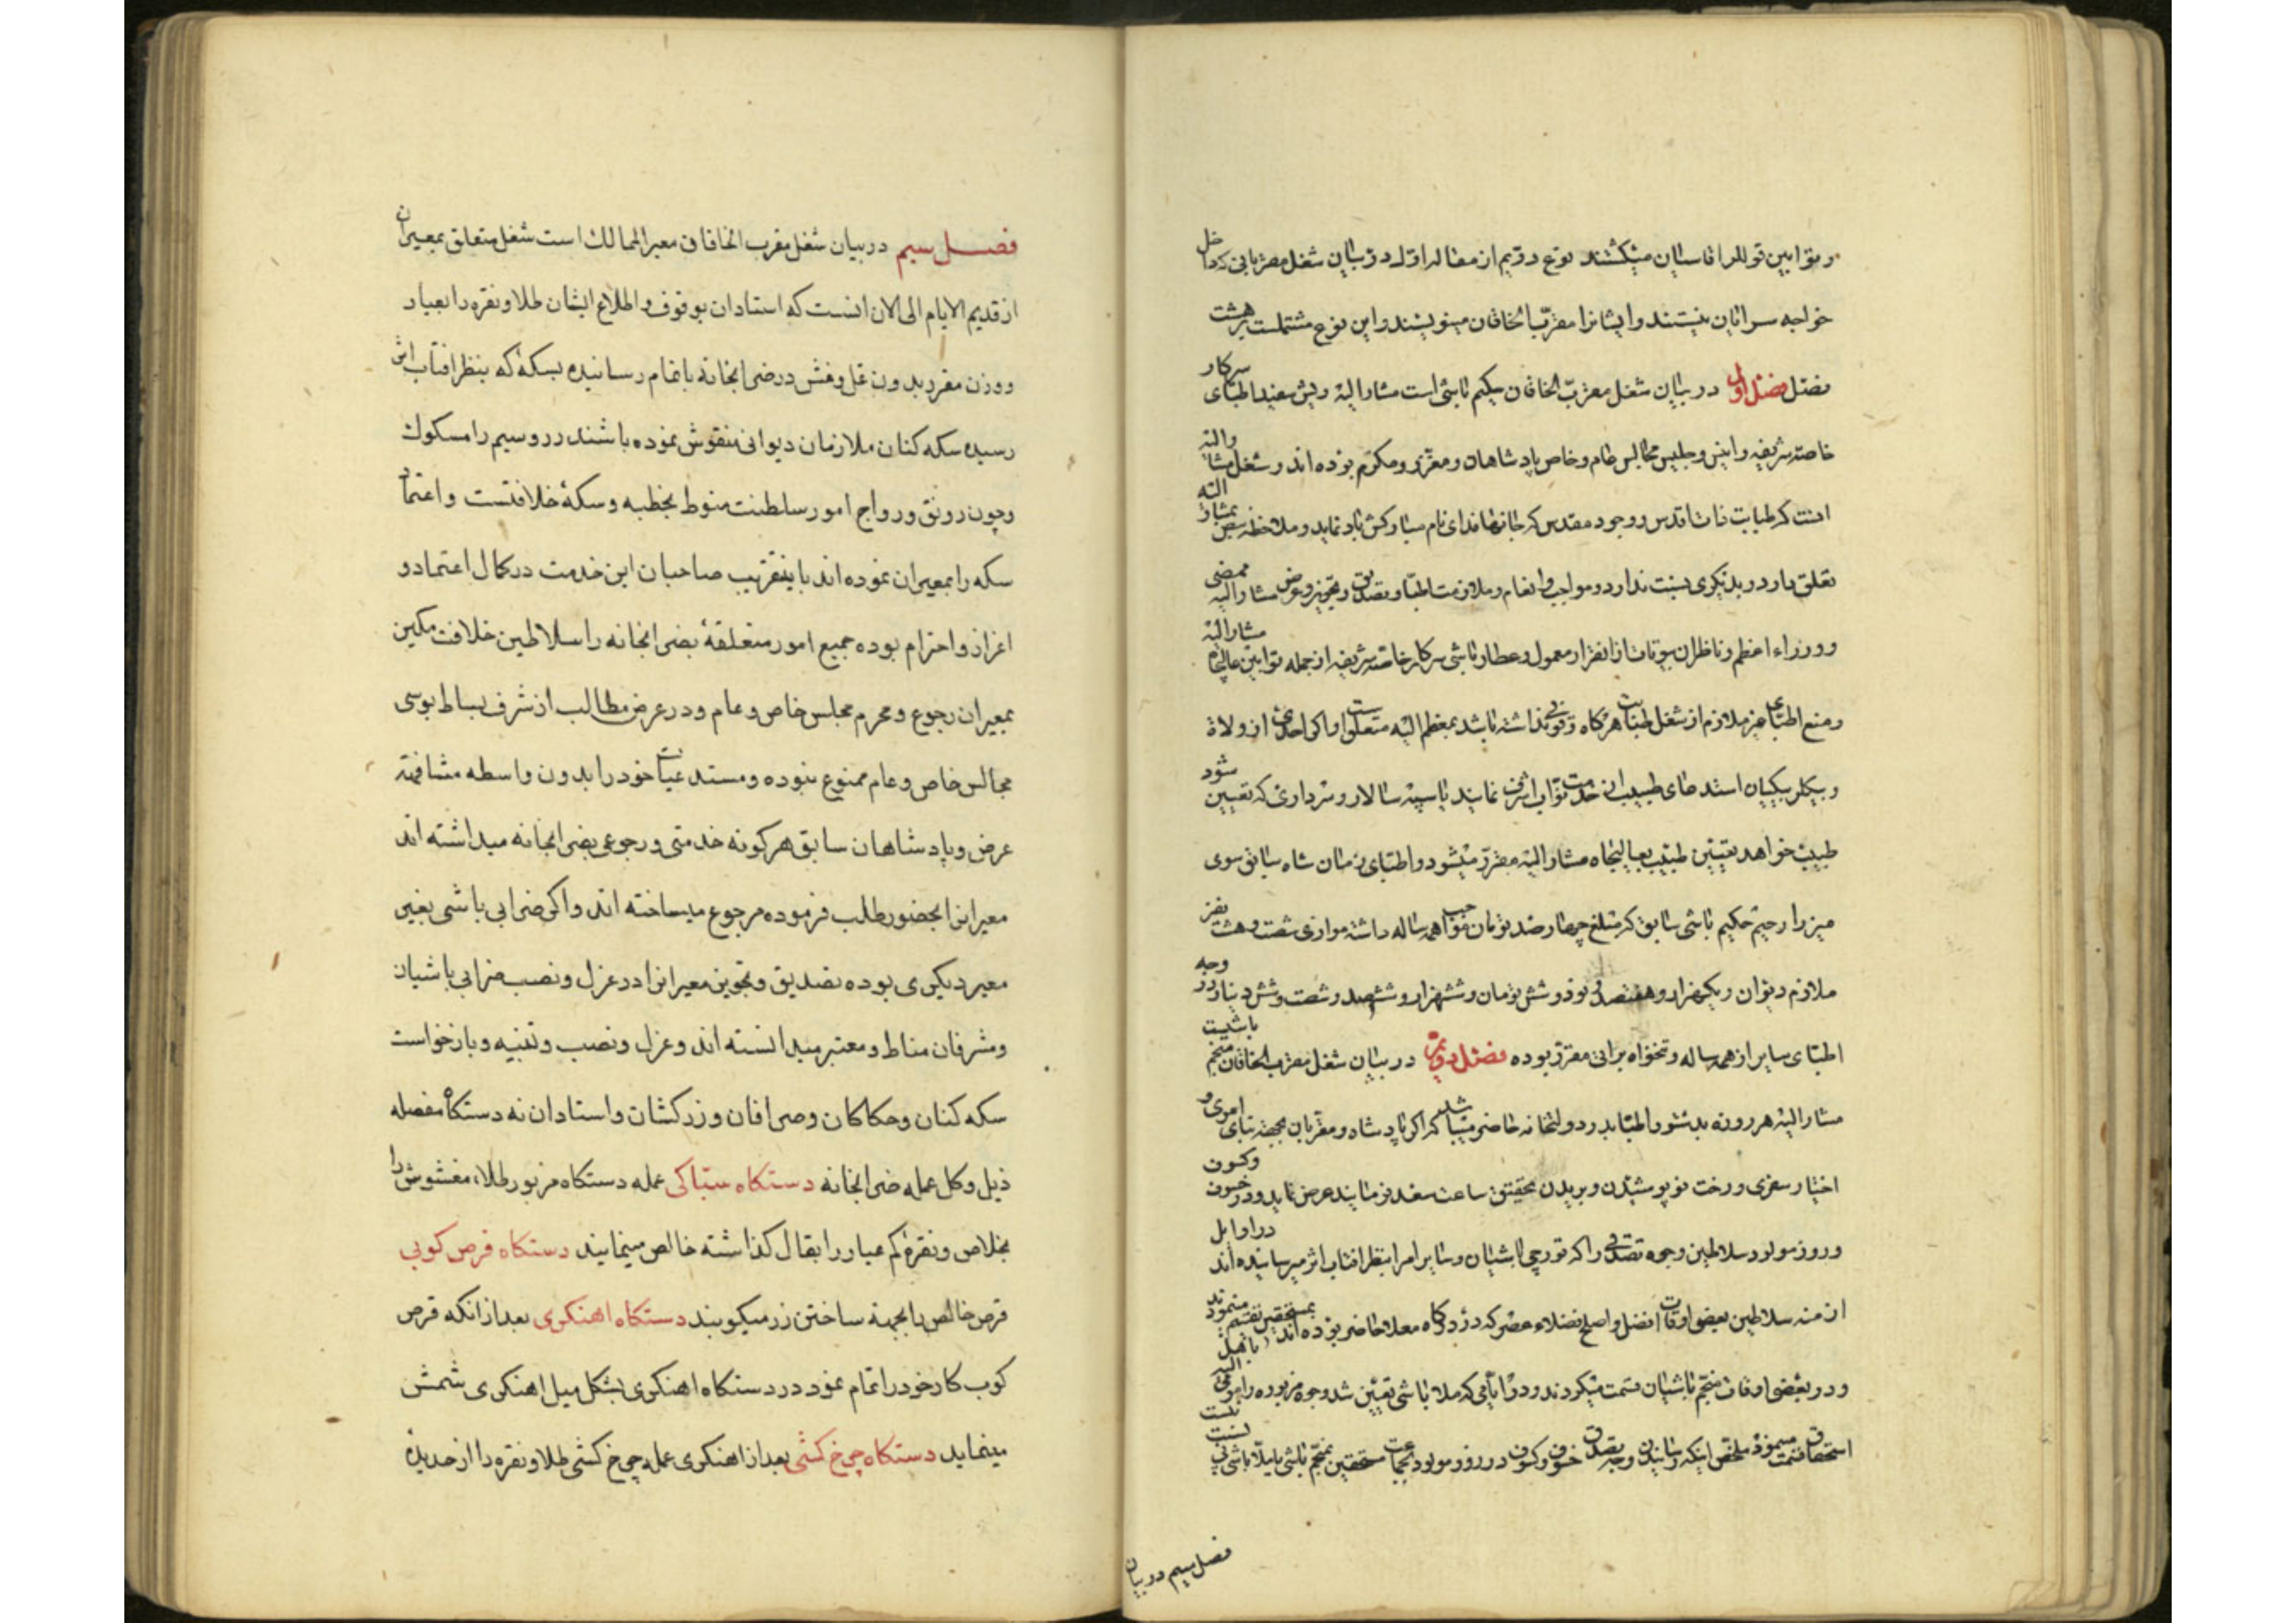 و توابین توللر اقاسیان میکشند نوع دویم از مقاله اول در بیان شغل مقربانی که داخل
خواجه سرایان نیستند و ایشانرا مقرب الخاقان مینویسند و این نوع مشتملست بر هشت
فصل فصل اول در بیان شغل مقرب الخاقان حکیم باشی است مشار الیه ریش سفید اطبای سرکار
خاصه شریفه و انیس و جلیس مجالس عام و خاص پادشاهان و معزز و مکرم بوده اند و شغل مشار الیه
انست که طبابت ذات اقدس و وجود مقدس که جانها فدای نام مبارکش باد نماید و ملاحظه نبض بمشار الیه
تعلق دارد و بدیگری نسبت ندارد و مواجب و انعام و ملازمت اطبا و بتصدیق و تجویز و عرض مشار الیه ممضی
و وزراء اعظم و ناظران بیوتات از انقرار معمول و عطار باشی سرکار خاصه شریفه از جمله توابین عالیجاه مشار الیه
و منع اطبای غیر ملازم از شغل طبابت هرگاه وقوفی نداشته باشد بمعظم الیه متعلق است و اگر احدی از ولاة
و بیگلربیگیان استدعای طبیب از خدمت نواب اشرف نمایند یا سپه سالار و سرداری که تعیین شود
طبیب خواهد تعیین طبیب بعالیجاه مشار الیه مقرر میشود و اطبای زمان شاه سابق سوی
میرزا رحیم حکیم باشی سابق که مبلغ چهار صد تومان مواجب همه ساله داشته موازی شصت و هشت نفر
ملازم دیوان و یکهزار و هفتصد و نود و شش تومان و ششهزار و ششصد و شصت و شش دینار در وجه
اطبای سایر از همه ساله و تنخواه براتی مقرر بوده فصل دویم در بیان شغل مقرب الخاقان منجم باشیست
مشار الیه هر روزه بدستور اطبا بدر دولتخانه حاضر میباشد که اگر پادشاه و مقربان بجهة بنای امری و
اختیار سفری و رخت نو پوشیدن و بریدن تحقیق ساعت سعد فرمایند عرض نماید و در خسوف و کسوف
و روز مولود سلاطین وجوه تصدقی را که قورچی باشیان و سایر امرا بنظر افتاب اثر میرسانیده اند در اوایل
ازمنه سلاطین بعضی اوقات افضل و اصلح فضلاء عصر که در درگاه معلا حاضر بوده اند بمستحقین تقسیم مینمودند
و در بعضی اوقات منجم باشیان قسمت میکردند و در ایامی که ملا باشی تعیین شد وجوه مزبوره را مومی الیه باهل
استحقاق قسمت مینمود ملخص اینکه رسانیدن وجه تصدق خسوف و کسوف و روز مولود بجماعت مستحقین بمنجم باشی یا بملا باشی نسبت
فصل سیم در بیان
فصل سیم در بیان شغل مقرب الخاقان معیر الممالک است شغل متعلق بمعیران
از قدیم الایام الی الان انست که استادان بوقوف و اطلاع ایشان طلا و نقره را بعیار
و وزن مقرر بدون غل و غش در ضرابخانه باتمام رسانیده بسکهٔ که بنظر افتاب اثر
رسیده سکه کنان ملازمان دیوانی منقوش نموده باشند زر و سیم را مسکوک
و چون رونق و رواج امور سلطنت منوط بخطبه و سکهٔ خلافتست و اعتماد
سکه را بمعیران نموده اند باینتقریب صاحبان این خدمت در کمال اعتماد و
اعزاز و احترام بوده جمیع امور متعلقهٔ بضرابخانه را سلاطین خلافت مکین
بمعیران رجوع و محرم مجلس خاص و عام و در عرض مطالب از شرف بساط بوسی
مجالس خاص و عام ممنوع نبوده و مستدعیات خود را بدون واسطه مشافهة
عرض و پادشاهان سابق هرگونه خدمتی و رجوعی بضرابخانه میداشته اند
معیرانرا بحضور طلب فرموده مرجوع میساخته اند و اگر ضرابی باشی بغیر
معیر دیگری بوده تصدیق و تجویز معیرانرا در عزل و نصب ضرابی باشیان
و مشرفان مناط و معتبر میدانسته اند و عزل و نصب و تنبیه و بازخواست
سکه کنان و حکاکان و صرافان و زرکشان و استادان نه دستگاه مفصله
ذیل و کل عمله ضرابخانه دستکاه سباکی عمله دستکاه مزبور طلاء مغشوش را
بخلاص و نقرهٔ کم عیار را بقال گذاشته خالص مینمایند دستکاه قرص کوبی
قرص خالص را بجهة ساختن زر میکوبند دستکاه اهنکری بعد از انکه قرص
کوب کار خود را تمام نمود در دستکاه اهنکری بشکل میل اهنکری شمش
مینماید دستکاه چرخ کشی بعد از اهنکری عمله چرخ کشی طلا و نقره را از حدیدهٔ